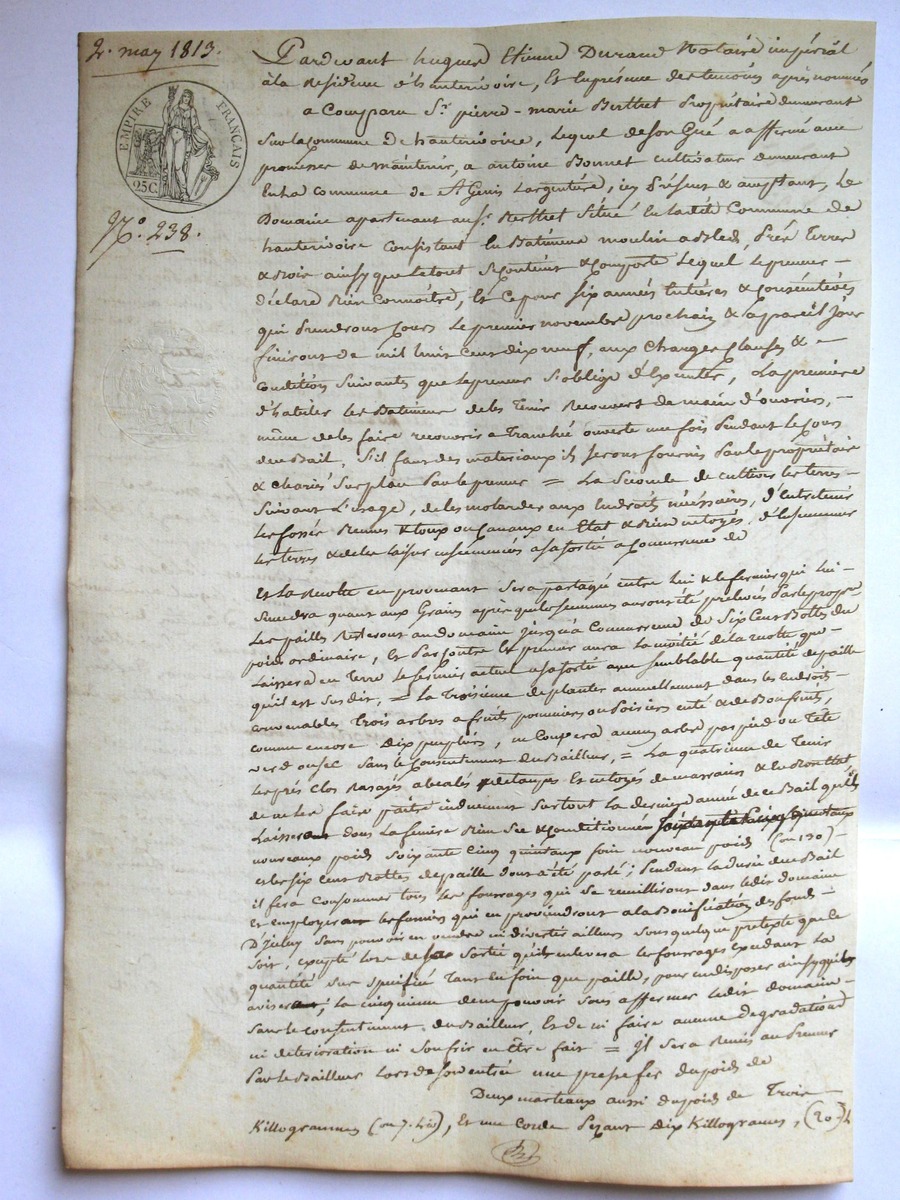 2. may 1813.
EMPIRE FRANÇAIS
25C.
N.° 238.
Pardevant hugues Etienne Durand Notaire impérial
à la Residence d'hauterivoire, Et En presence des temoins apres nommés
a Comparu Sr. pierre-marie Berthet Propriétaire demeurant
Sur la commune D'hauterivoire, Lequel de son Gré a affermé avec
promesse de maintenir, a antoine Bonnet cultivateur demeurant
En La commune de St Genis Largentiere, icy Présent & acceptant, Le
Domaine apartenant au Sr. Berthet Situé En Ladite Commune de
hauterivoire Consistant En Batiment moulin a Bled, Prés Terres
& Bois ainsy que le tout Se Contient & Comporte Lequel Le preneur
déclare Bien Connoitre, Et Ce pour Six années Entières & Consécutives
qui Prendront Cours Le premier novembre prochain & a pareil Jour
finiront de mil huit Cent dix neuf, aux Charges Clauses & -
Conditions Suivantes que Le preneur S'oblige d'Exécuter, La première
d'habiter Les Batiments de les Tenir Recouvert de main d'ouvriers, -
même de les faire recouvrir a Tranchée ouverte une fois Pendant le Cours
du Bail, S'il faut des materiaux ils Seront fournis Par le propriétaire
& Chariés Sur place Par le preneur = La Seconde de cultiver les terres -
Suivant L'usage, de les aux Endroits nécéssaires, d'Entretenir
Les fossés & ou Canaux En Etat & Bien netoyés, d'Ensemencer
Les terres & de les Laisser ensemencées a sa sortie a Concurrence de
Et La Recolte en provenant Sera partagée entre Lui & le fermier qui Lui
Succedra quant aux Grains après que les semences auront été prelevées Par le propre.
Les pailles Resteront au domaine Jusqu'à Concurrence de Six Cent Bottes du
poids ordinaire, Et Par Contre Le preneur aura La moitié de la recolte que
Laissera en Terre Le fermier actuel a sa sortie avec Semblable quantité de paille
qu'il est Susdit, = La Troisieme de planter annuellement dans les Endroits
convenables Trois arbres a fruits pommiers ou Poiriers enté & de Bon fruits,
comme encore dix peupliers, ne Coupera aucun arbre par pied ou Tête
verd ou sec Sans Le Consentement du Bailleur, = La quatrieme de Tenir
Les prés Clos Rasés
de ne Les faire paître induement Surtout La dernière année de ce Bail qu'il
Laissera dans La feniere Bien Sec & Conditionnée
nouveaux poids Soixante Cinq quintaux foin nouveau poids (ou 130) -
et les Six Cent Bottes de paille dont a été parlé; Pendant La durée du Bail
il fera Consommer Tous Les fourrages qui Se recuilliront dans Le dit domaine
Et employera Les fumiers qui en proviendront a La Bonification des fonds
D'iceluy Sans pouvoir en vendre ni divertir ailleurs Sous quelque pretexte que Ce
Soit, excepté Lors de Sa Sortie qu'il enlevera Les fourrages excedant La
quantité Sus Spécifiée Tant En foin que paille, pour en disposer ainsy qu'il
avisera; La cinquieme de ne pouvoir Sous affermer Le dit domaine
Sans Le Consentement du Bailleur, Et de ni faire aucune degradations
ni deterioration ni Soufrir en être fait = Il Sera Remis au Preneur
Par Le Bailleur Lors de Son entrée une de fer du poids de
Deux marteaux aussi du poids de Trois
Killogrammes (ou 7. Liv), Et une Corde Pesant dix Killogrames, (20 L